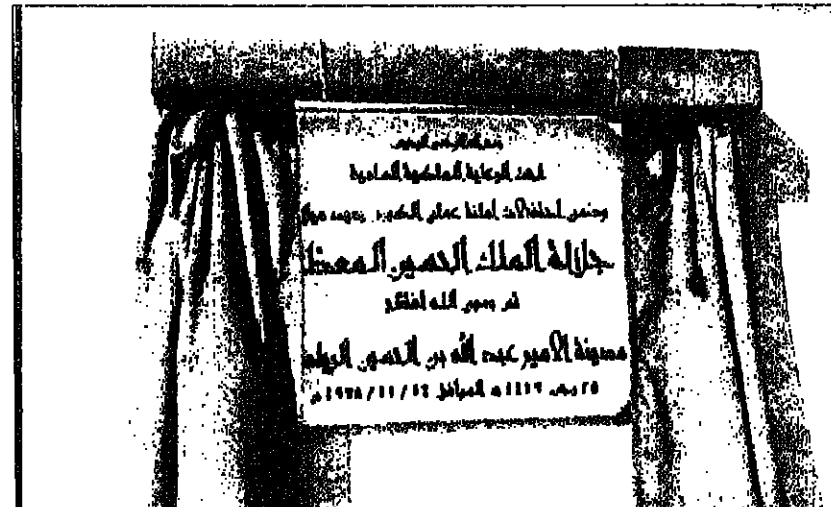 بسم الله الرحمن الرحيم
تحت الرعاية الملكية السامية
وضمن احتفالات أمانة عمان الكبرى بعيد ميلاد
جلالة الملك الحسين المعظم
تم بعون الله افتتاح
مدينة الأمير عبد الله بن الحسين الرياضية
٢٥ رجب ١٤١٩ هـ الموافق ١٤ / ١١ / ١٩٩٨ م